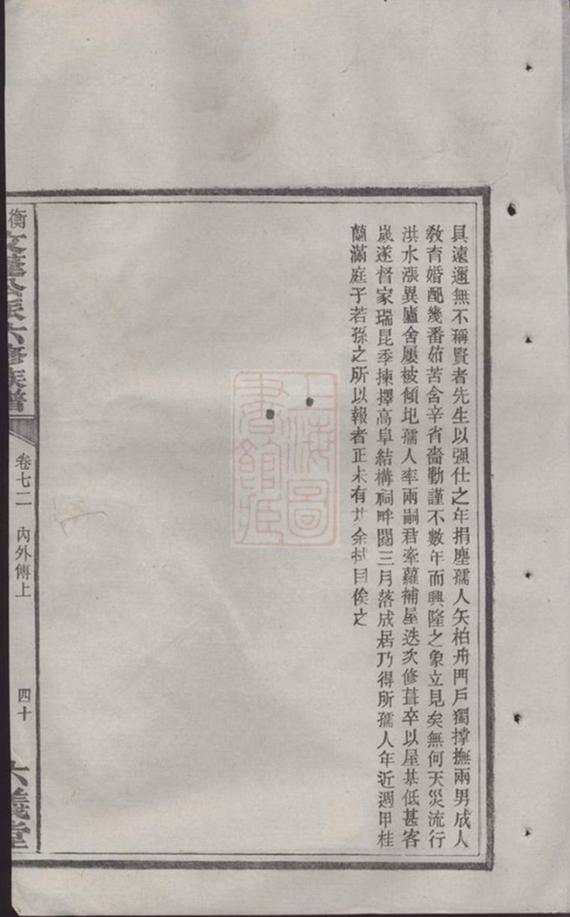 具遠邇無不稱賢者先生以强仕之年捐塵孺人矢柏舟門戶獨撐撫兩男成人
敎育婚配幾番茹苦含辛省嗇勤謹不數年而興隆之象立見矣無何天災流行
洪水漲異廬舍屢被傾圯孺人率兩嗣君牽蘿補屋迭次修葺卒以屋基低甚客
歲遂督家瑞昆季揀擇高阜結構祠畔閱三月落成居乃得所孺人年近週甲桂
蘭滿庭子若孫之所以報者正未有艾余拭目俟之
衡文蓮公派六修族譜
卷七二 內外傳上
四十
六義堂
上海圖書館藏